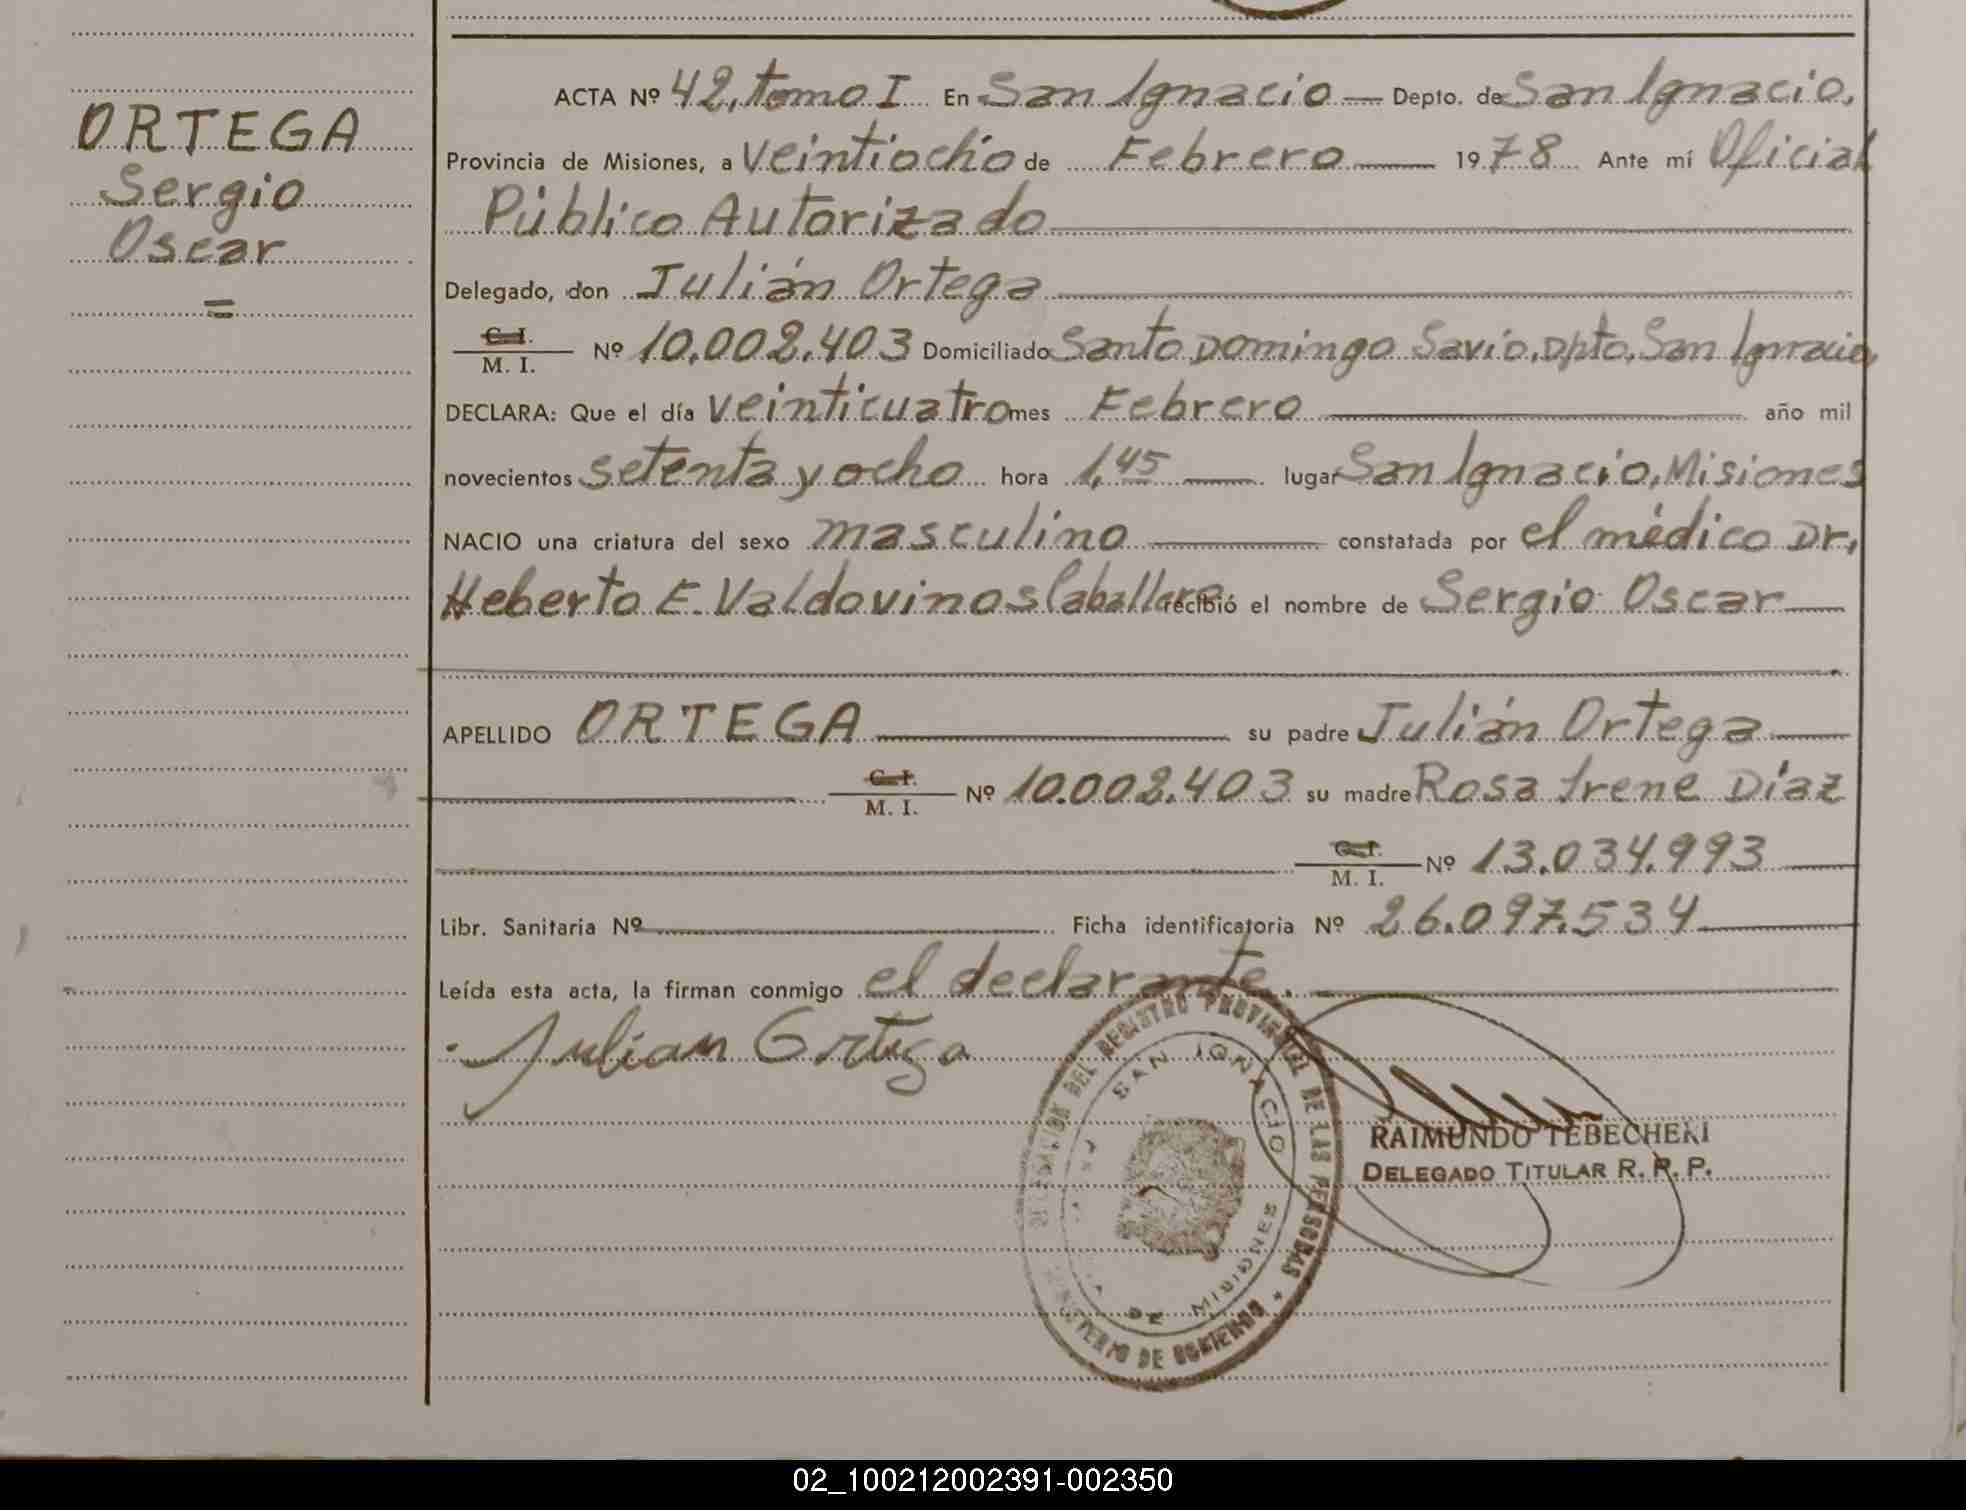 ORTEGA
Sergio
Oscar
=
ACTA Nº 42, tomo I En San Ignacio — Depto. de San Ignacio,
Provincia de Misiones, a Veintiocho de Febrero — 1978 Ante mí Oficial
Público Autorizado
Delegado, don Julián Ortega
C. I.
M. I. Nº 10.002.403 Domiciliado Santo Domingo Savio, Dpto, San Ignacio,
DECLARA: Que el día veinticuatro mes Febrero — año mil
novecientos setenta y ocho hora 1,45 — lugar San Ignacio, Misiones
NACIO una criatura del sexo masculino — constatada por el médico Dr,
Heberto E. Valdovinos Caballero recibió el nombre de Sergio Oscar
APELLIDO ORTEGA — su padre Julián Ortega
C. I.
M. I. Nº 10.002.403 su madre Rosa Irene Díaz
C. I.
M. I. Nº 13.034.993
Libr. Sanitaria Nº — Ficha identificatoria Nº 26.097.534
Leída esta acta, la firman conmigo el declarante.
Julian Ortega
DELEGACION DEL REGISTRO PROVINCIAL DE LAS PERSONAS
SAN IGNACIO
DE MISIONES
MINISTERIO DE GOBIERNO
RAIMUNDO TEBECHERI
DELEGADO TITULAR R. P. P.
02_100212002391-002350